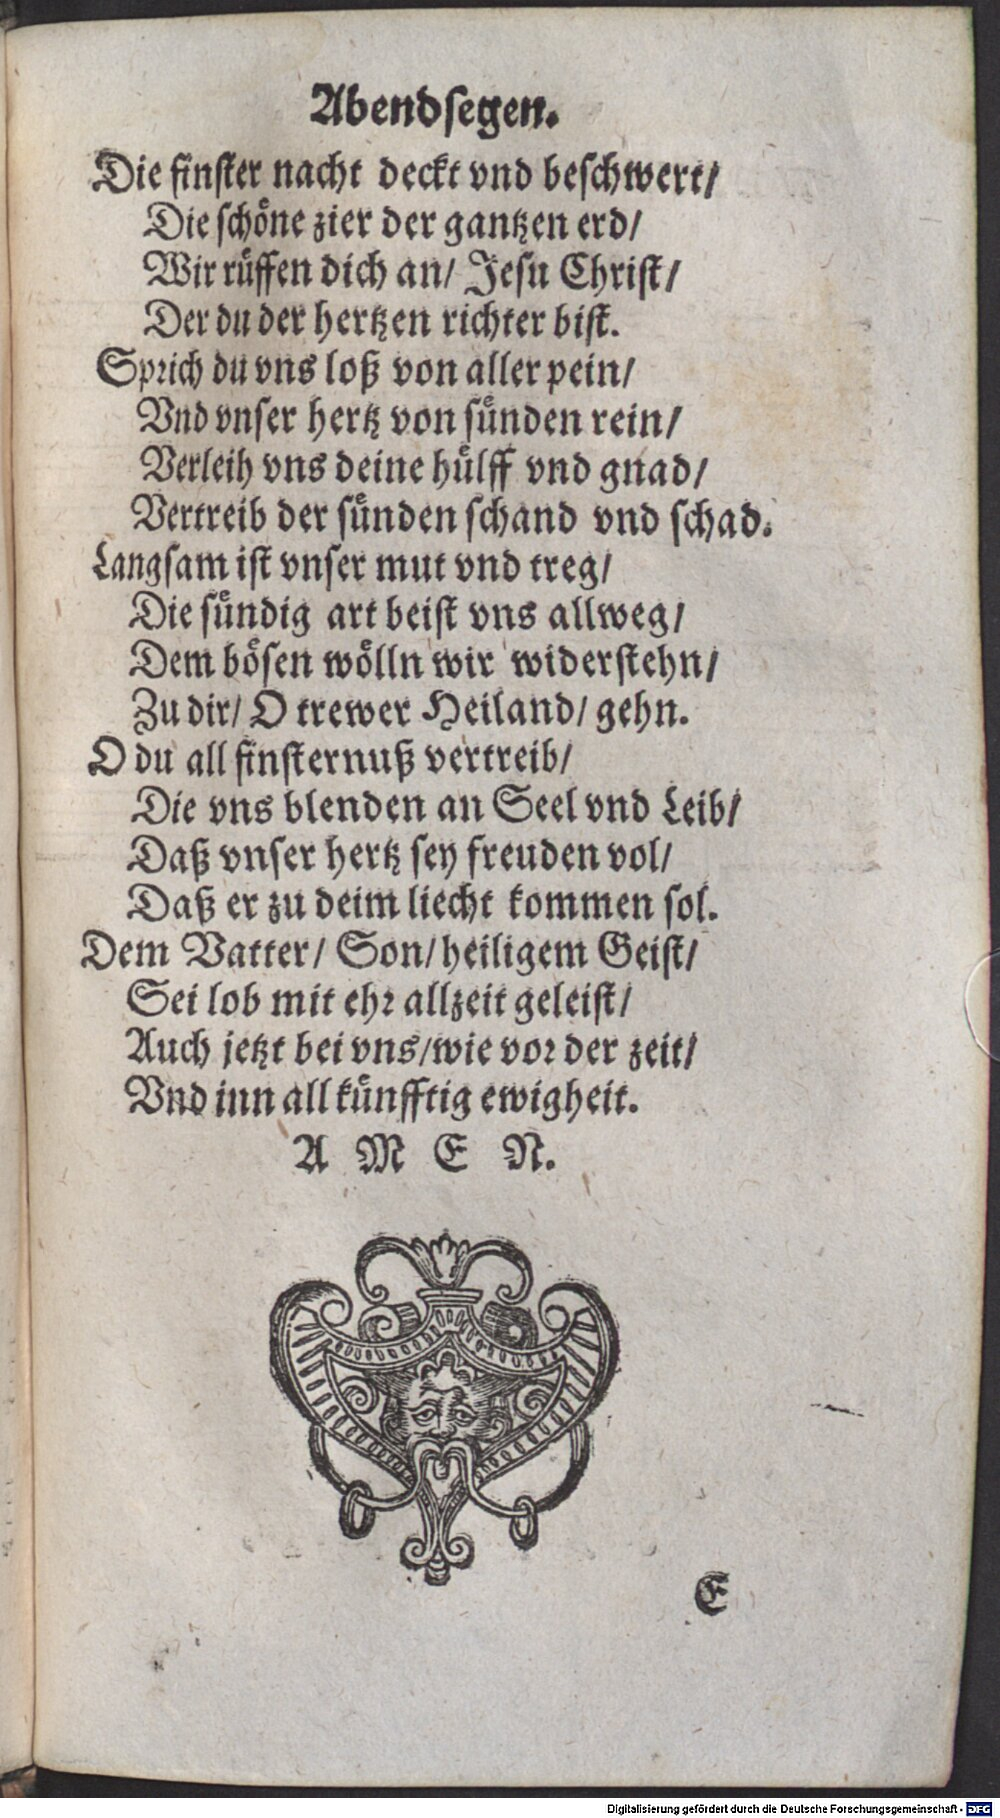 Abendsegen.
Die finster nacht deckt vnd beschwert/
Die schöne zier der gantzen erd/
Wir rüffen dich an/ Jesu Christ/
Der du der hertzen richter bist.
Sprich du vns loß von aller pein/
Vnd vnser hertz von sünden rein/
Verleih vns deine hülff vnd gnad/
Vertreib der sünden schand vnd schad.
Langsam ist vnser mut vnd treg/
Die sündig art beist vns allweg/
Dem bösen wölln wir widerstehn/
Zu dir/ O trewer Heiland/ gehn.
O du all finsternuß vertreib/
Die vns blenden an Seel vnd Leib/
Daß vnser hertz sey freuden vol/
Daß er zu deim liecht kommen sol.
Dem Vatter/ Son/ heiligem Geist/
Sei lob mit ehr allzeit geleist/
Auch jetzt bei vns/wie vor der zeit/
Vnd inn all künfftig ewigheit.
A M E N.
E
Digitalisierung gefördert durch die Deutsche Forschungsgemeinschaft - DFG